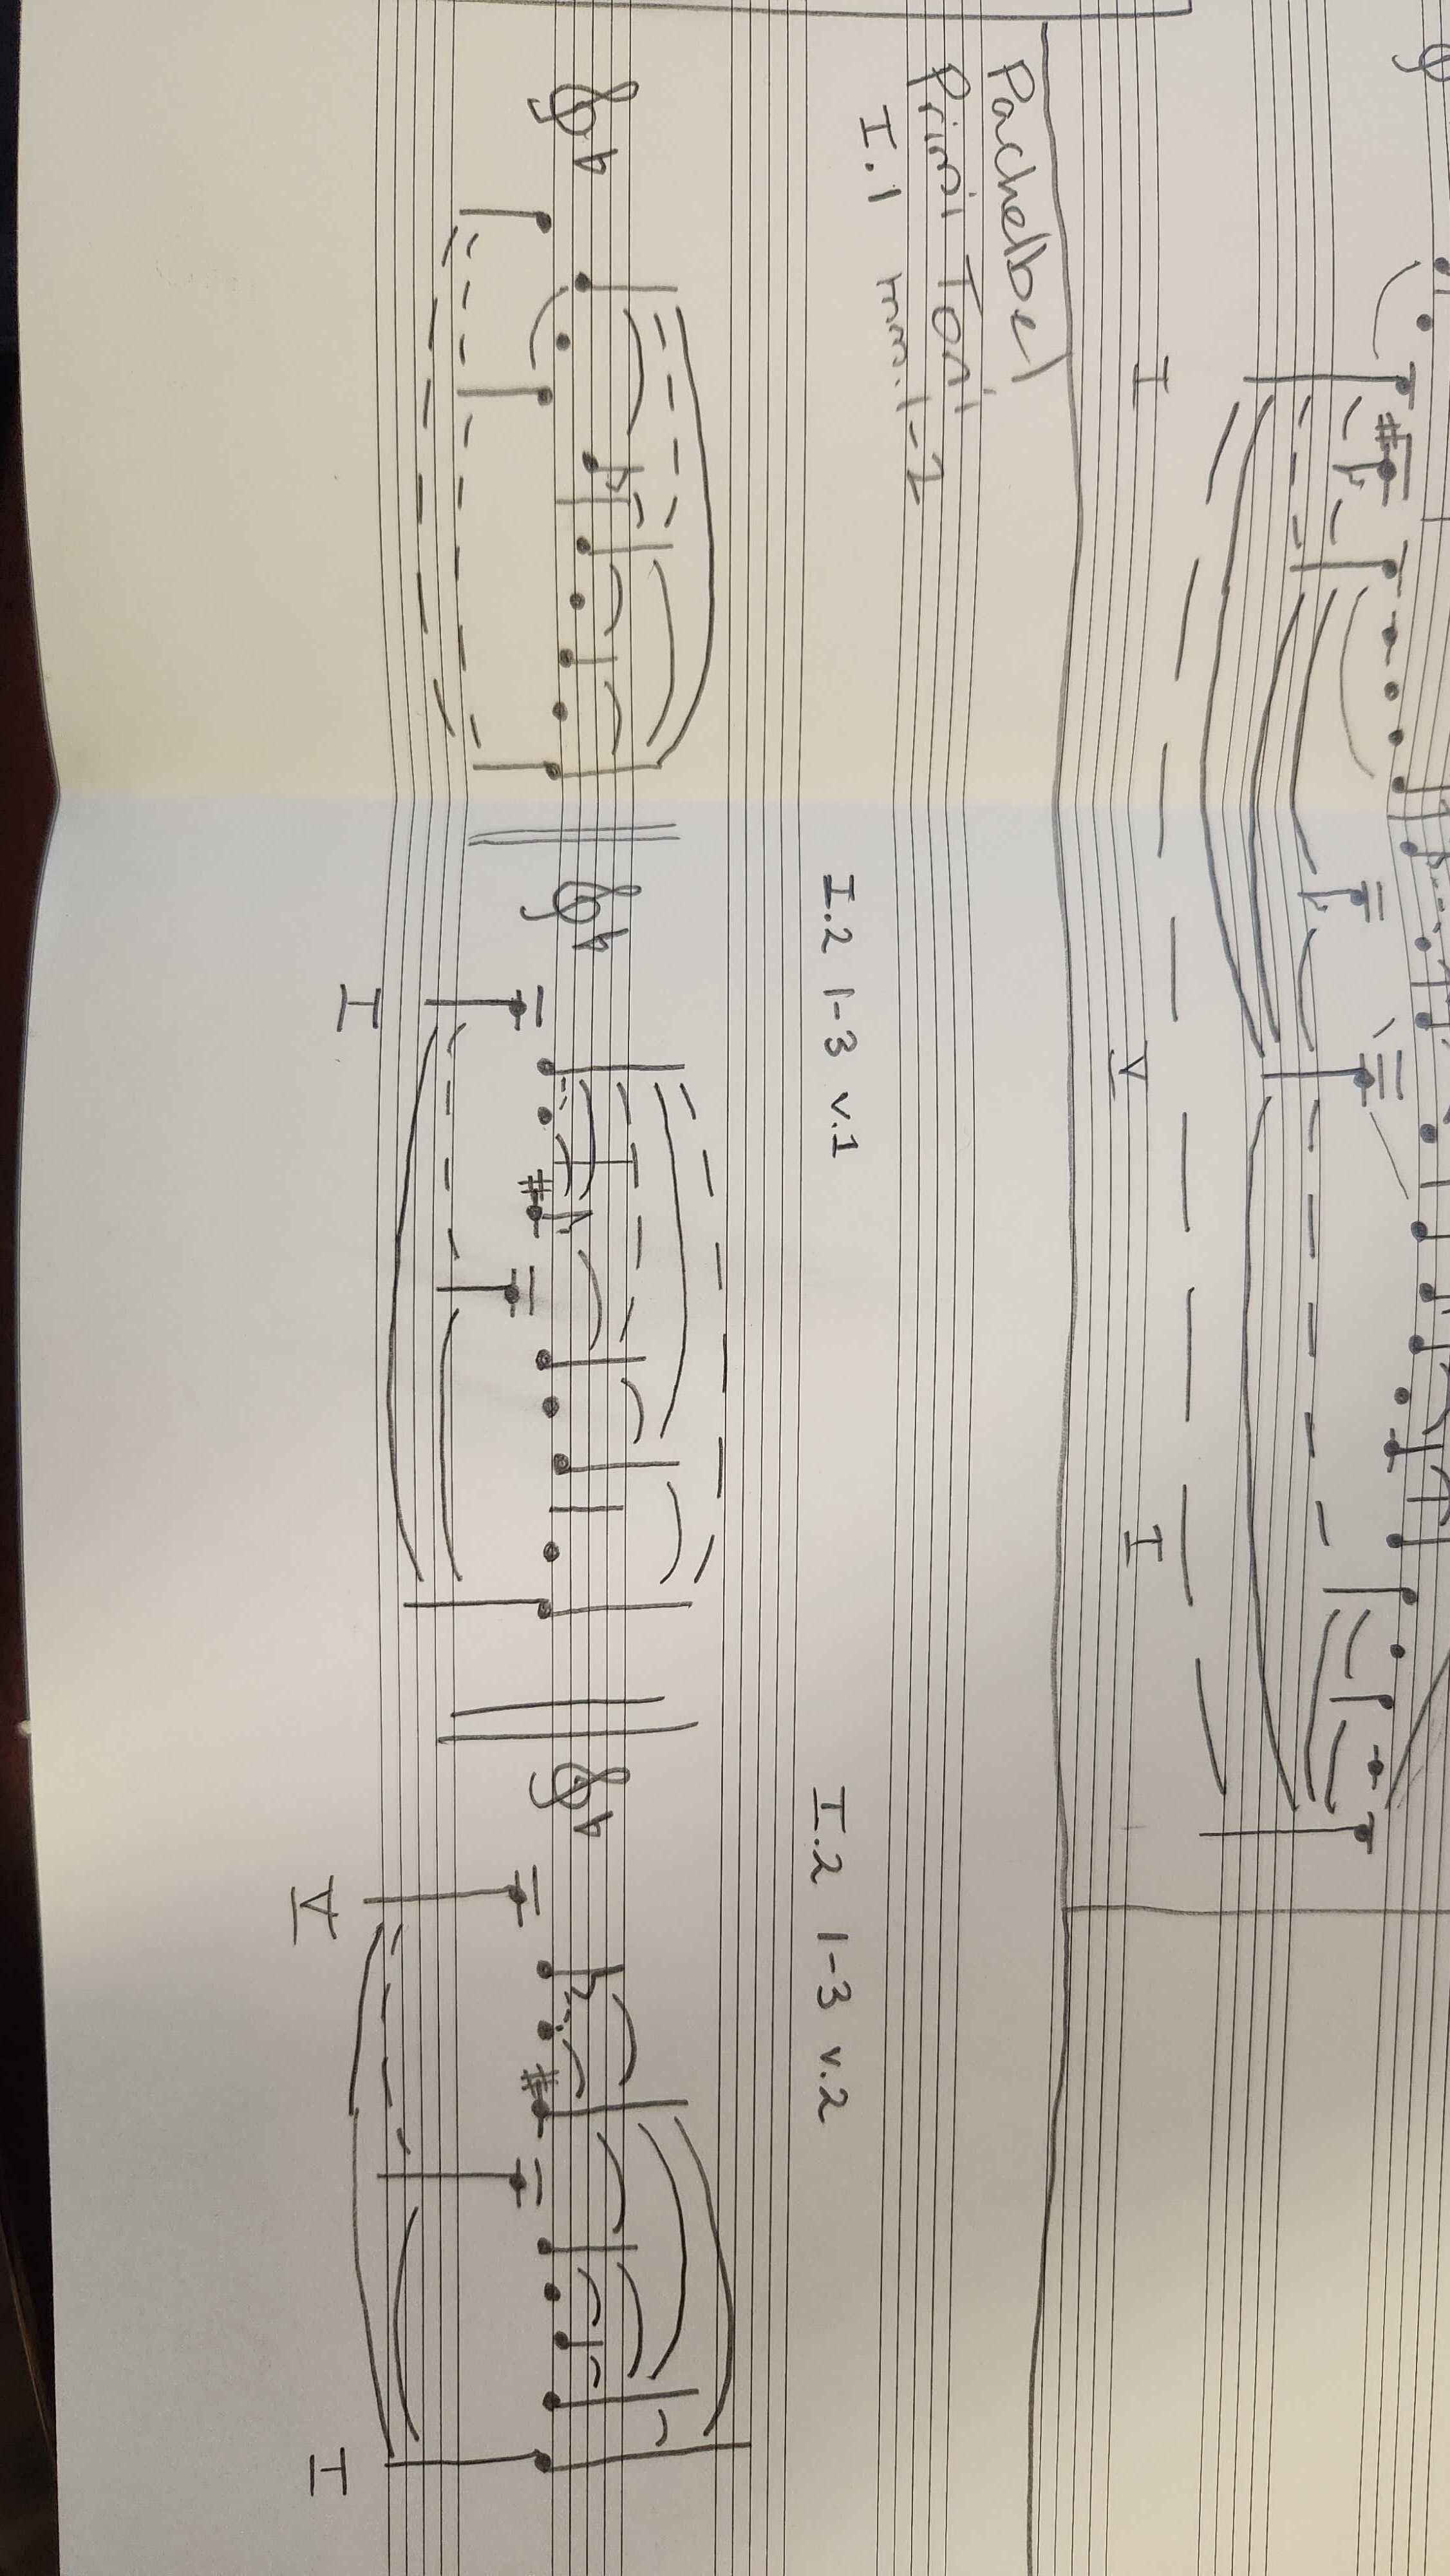 I V I
Pachelbel
Primi Toni
I.1 mm.1-2
I.2 1-3 v.1
I.2 1-3 v.2
I V I